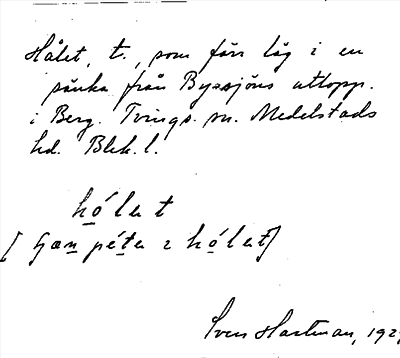 Hålet, t., som förr låg i en
sänka från Byasjöns utlopp.
i Berg. Tvings sn. Medelstads
hd. Blek. l.
hólet
péta hólet]
Sven Hartman, 192